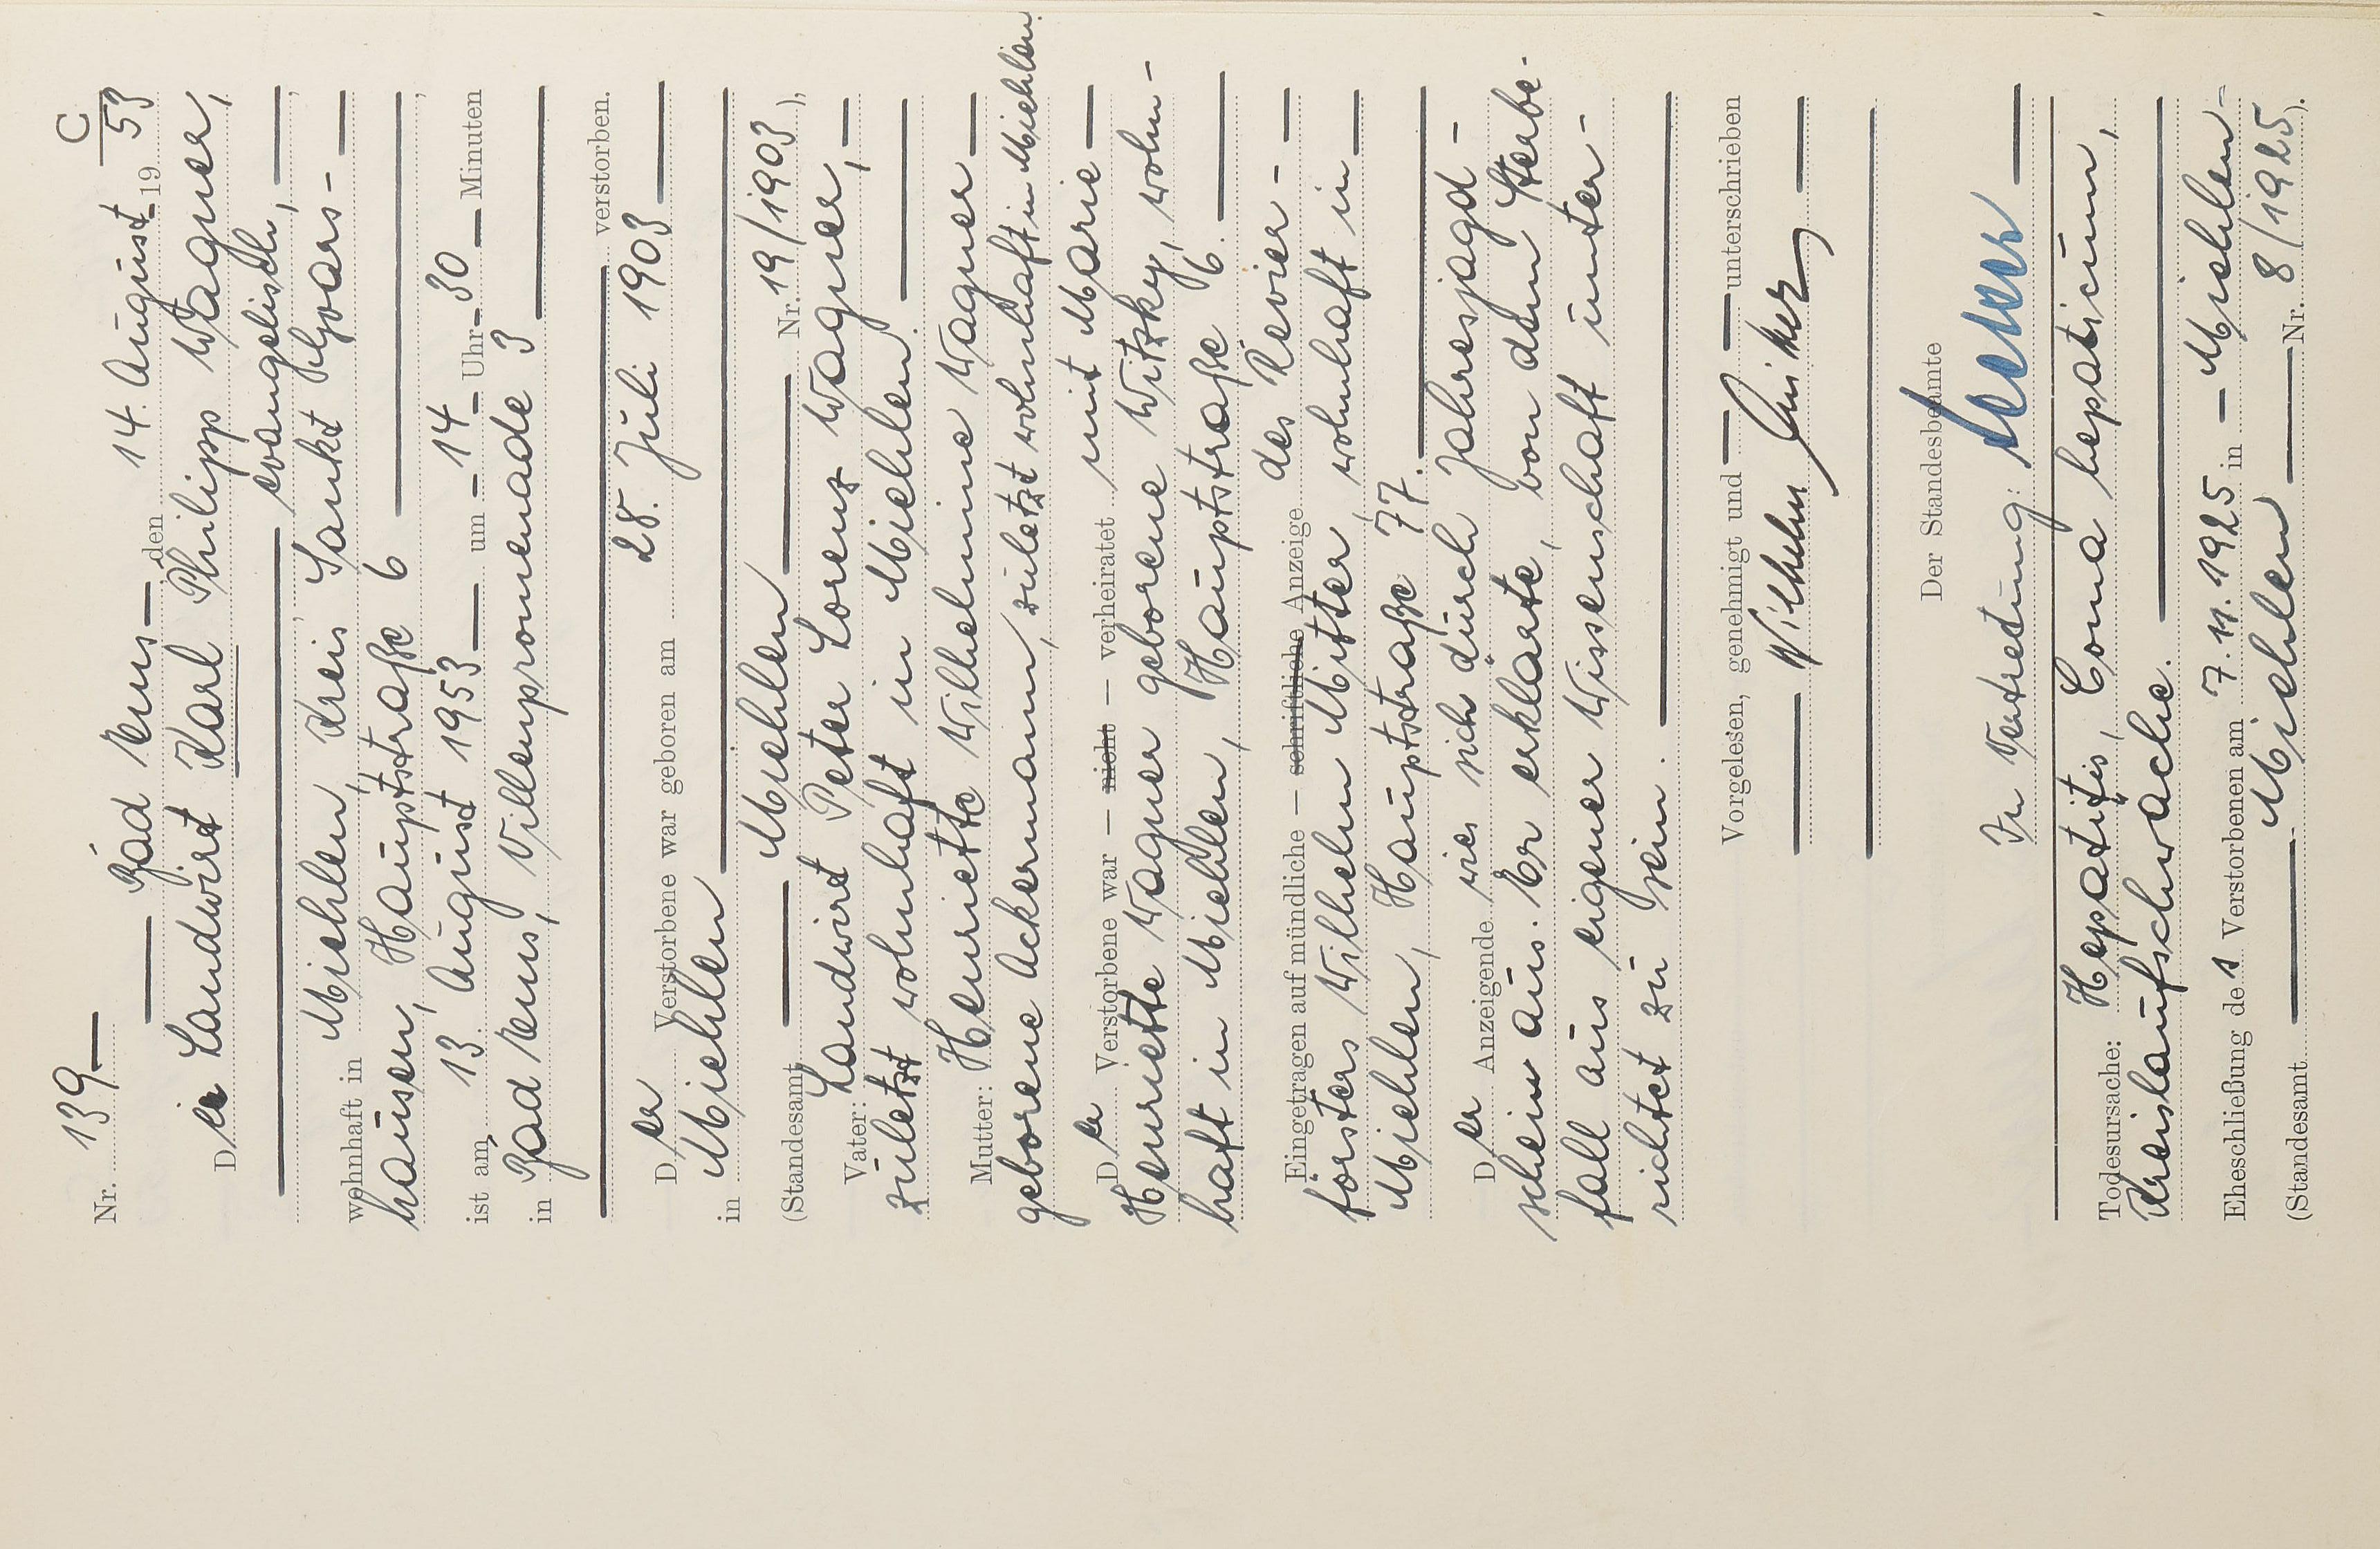 C
Nr. 139
Bad Ems den 14. August 19 53
Der Landwirt Karl Philipp Wagner,
evangelisch,
wohnhaft in Miehlen, Kreis Sankt Goars-
hausen, Hauptstraße 6
ist am 13. August 1953 um 14 Uhr 30 Minuten
in Bad Ems, Villenpromenade 3
verstorben.
Der Verstorbene war geboren am 28. Juli 1903
in Miehlen
(Standesamt Miehlen Nr. 19/1903),
Vater: Landwirt Peter Lorenz Wagner,
zuletzt wohnhaft in Miehlen.
Mutter: Henriette Wilhelmine Wagner
geborene Ackermann, zuletzt wohnhaft in Miehlen.
Der Verstorbene war — nicht — verheiratet mit Marie
Henriette Wagner geborene Witzky, wohn-
haft in Miehlen, Hauptstraße 6.
Eingetragen auf mündliche — schriftliche Anzeige des Revier-
försters Wilhelm Mitter, wohnhaft in
Miehlen, Hauptstraße 77.
Der Anzeigende wies sich durch Jahresjagd-
schein aus. Er erklärte, von dem Sterbe-
fall aus eigener Wissenschaft unter-
richtet zu sein.
Vorgelesen, genehmigt und unterschrieben
Wilhelm
Der Standesbeamte
In Vertretung:
Todesursache: Hepatitis, Coma hepaticum,
Kreislaufschwäche.
Eheschließung des Verstorbenen am 7.11.1925 in Miehlen
(Standesamt Miehlen Nr. 8/1925).